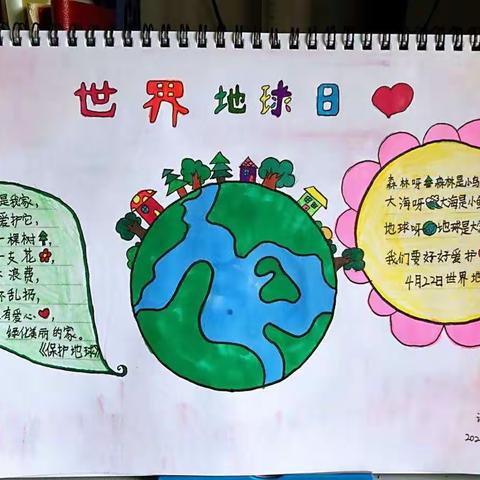 世界地球日
是我家，
爱护它，
一棵树
一支花
浪费，
乱扔，
有爱心
绿化美丽的家。
《保护地球》
森林呀 森林是小鸟
大海呀 大海是小鱼
地球呀 地球是大
我们要好好爱护
4月22日世界地
202